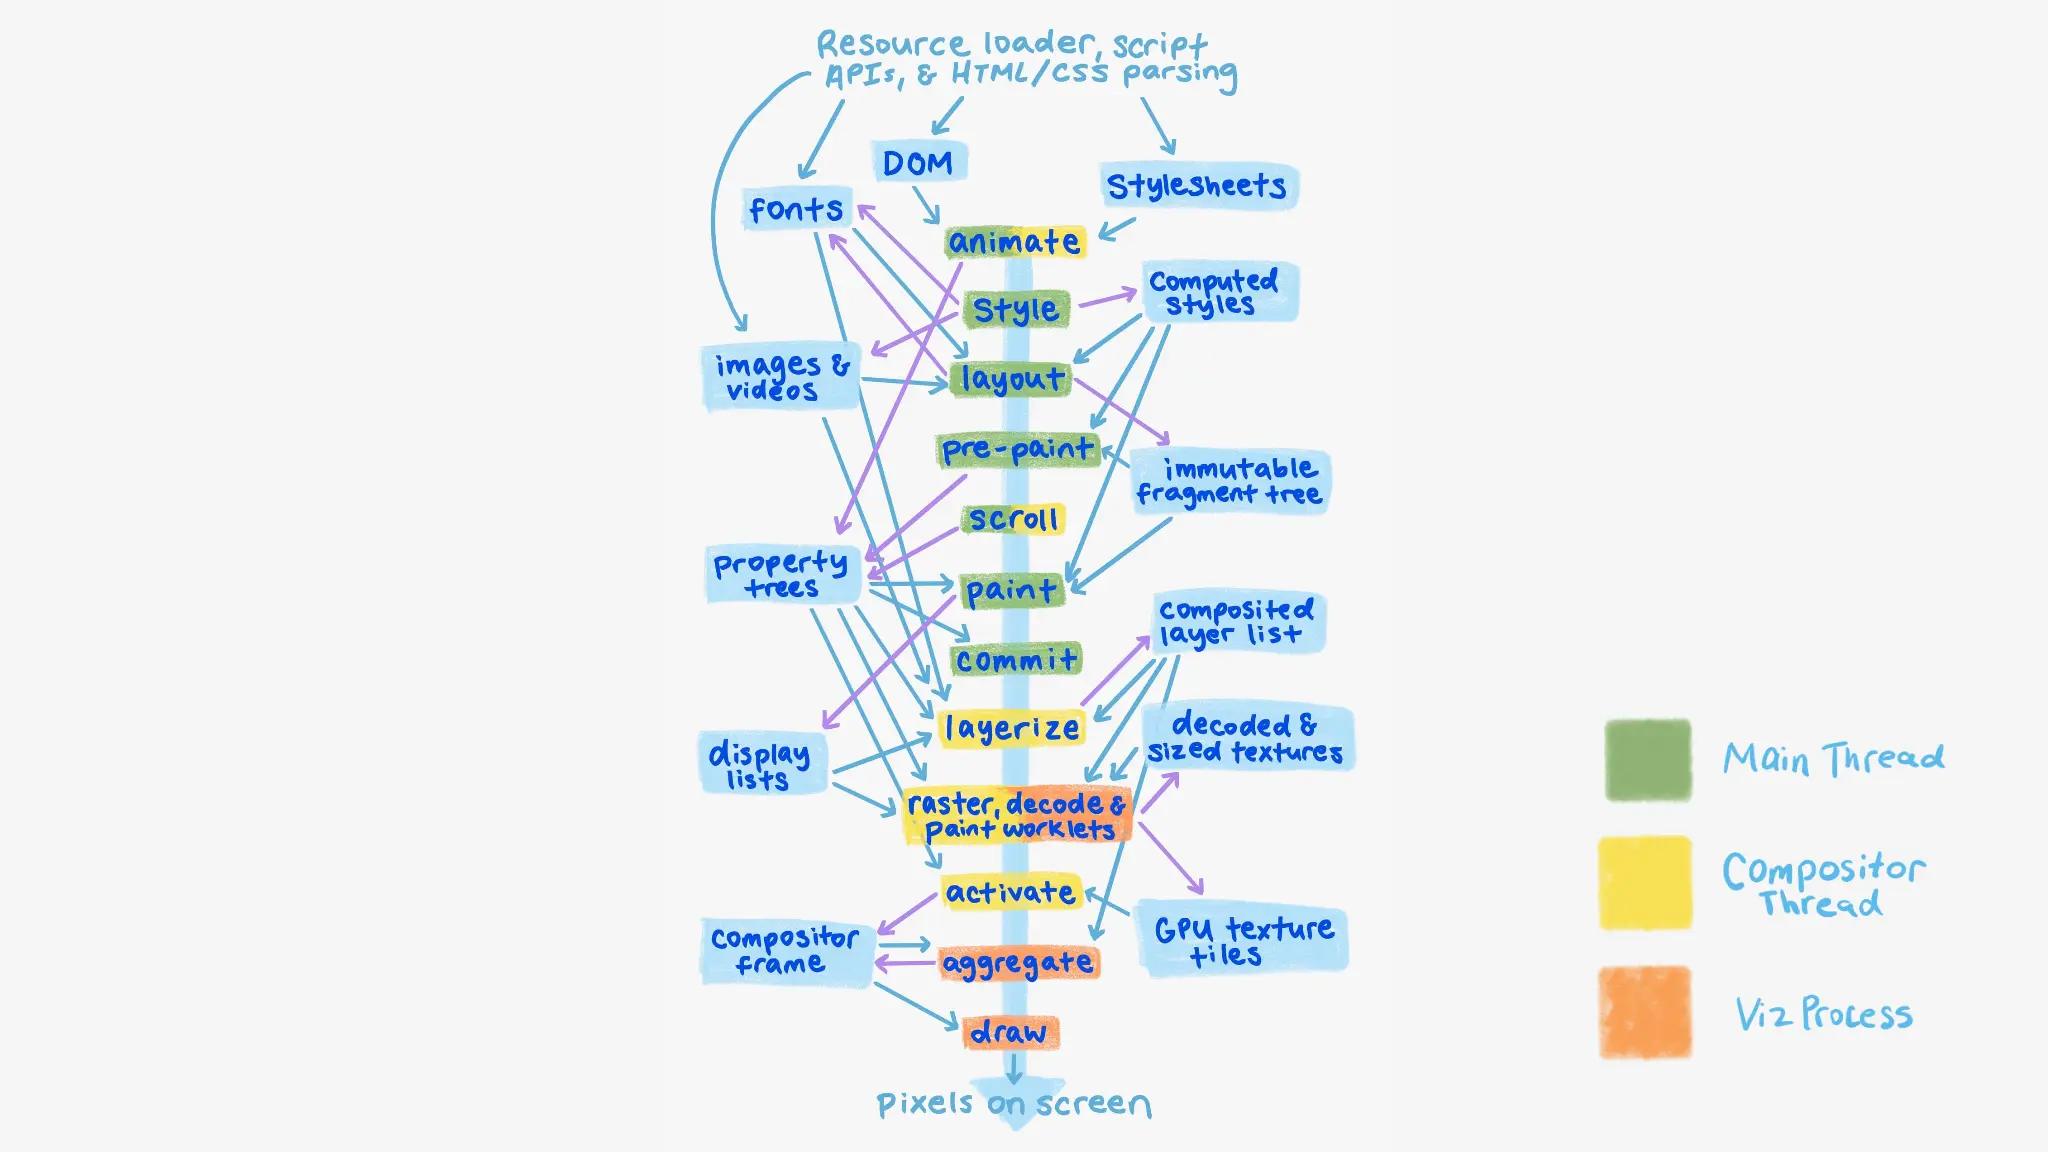 Resource loader, script
APIs, & HTML/CSS parsing
DOM
Stylesheets
fonts
animate
Computed
styles
Style
images &
videos
layout
pre-paint
immutable
fragment tree
scroll
property
trees
paint
composited
layer list
commit
layerize
decoded &
sized textures
display
lists
raster, decode &
paint worklets
activate
GPU texture
tiles
compositor
frame
aggregate
draw
Pixels on screen
Main Thread
Compositor
Thread
Viz Process